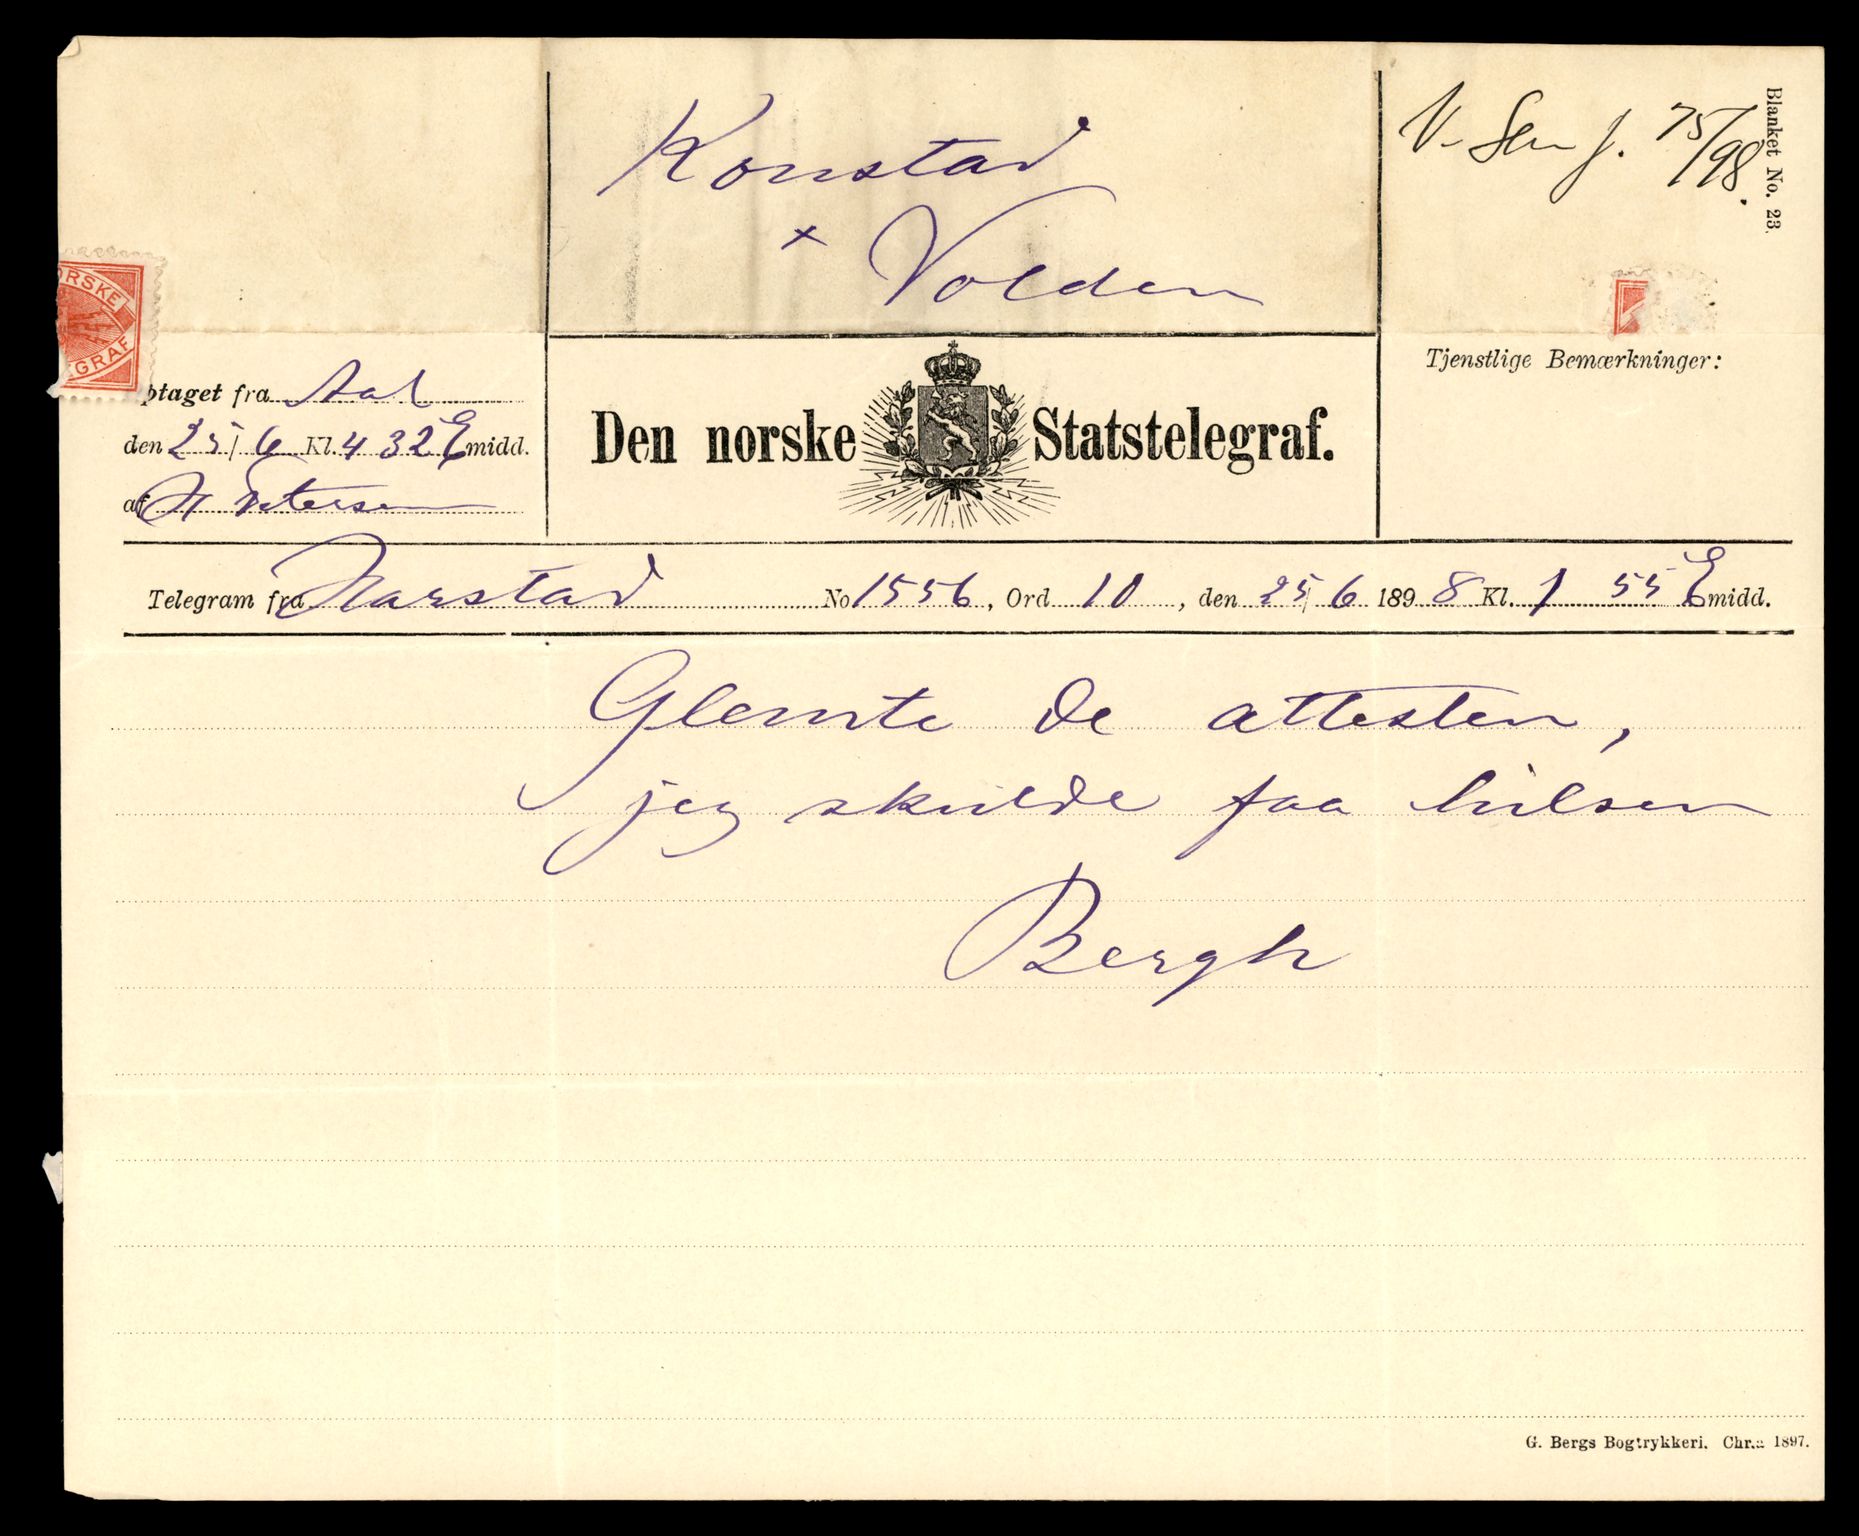 Konstad
× Volden
V. Sen J. 75/98.
Blanket No. 23.
ORSKE
EGRAF
ptaget fra Aal
den 25/6 Kl. 4 32 Emidd.
af H Petersen
Den norske Statstelegraf.
Tjenstlige Bemærkninger:
Telegram fra Harstad No 1556, Ord 10, den 25/6 1898 Kl. 1 55 Emidd.
Glemte De attesten,
jeg skulde faa hilsen
Bergh
G. Bergs Bogtrykkeri. Chr.a 1897.